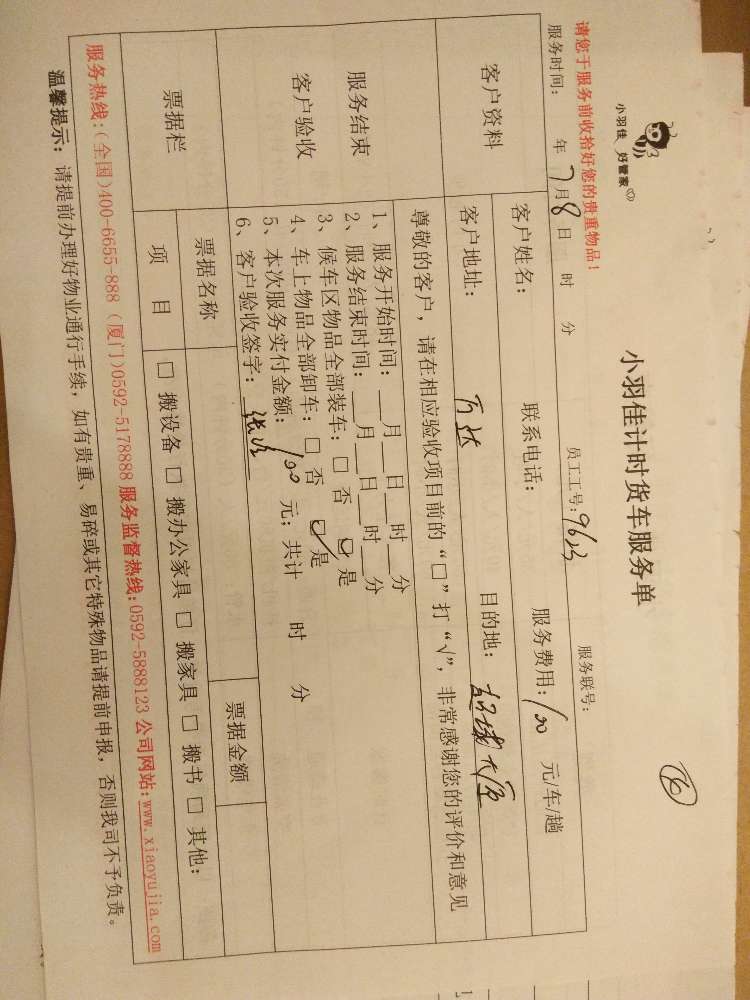 小羽佳 好管家
小羽佳计时货车服务单
请您于服务前收拾好您的贵重物品！ 员工工号： 服务联号：
服务时间： 年 7月8日 时 分
客户资料
客户姓名： 联系电话： 服务费用：100 元/车/趟
客户地址：万达 目的地：
尊敬的客户，请在相应验收项目前的“□”打“√”，非常感谢您的评价和意见
服务结束
客户验收
1、服务开始时间：__月__日__时__分
2、服务结束时间：__月__日__时__分
3、候车区物品全部装车：□ 否 ☑ 是
4、车上物品全部卸车：□ 否 ☑ 是
5、本次服务实付金额：100 元；共计 时 分
6、客户验收签字：
票据栏
票据名称 票据金额
项 目 □ 搬设备 □ 搬办公家具 □ 搬家具 □ 搬书 □ 其他：
服务热线：（全国）400-6655-888（厦门）0592-5178888 服务监督热线：0592-5888123 公司网站：www.xiaoyujia.com
温馨提示：请提前办理好物业通行手续，如有贵重、易碎或其它特殊物品请提前申报，否则我司不予负责。